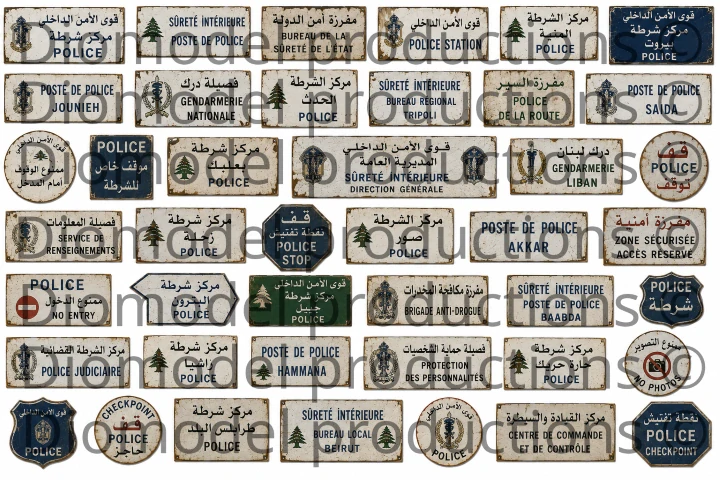 قوى الأمن الداخلي
مركز شرطة
POLICE
SÛRETÉ INTÉRIEURE
POSTE DE POLICE
مفرزة أمن الدولة
BUREAU DE LA
SÛRETÉ DE L'ÉTAT
قوى الأمن الداخلي
POLICE STATION
مركز الشرطة
المنية
POLICE
قوى الأمن الداخلي
مركز شرطة
بيروت
POLICE
POSTE DE POLICE
JOUNIEH
فصيلة درك
GENDARMERIE
NATIONALE
مركز الشرطة
الحدث
POLICE
SÛRETÉ INTÉRIEURE
BUREAU RÉGIONAL
TRIPOLI
مفرزة السير
POLICE
DE LA ROUTE
POSTE DE POLICE
SAIDA
قوى الأمن الداخلي
ممنوع الوقوف
أمام المدخل
POLICE
موقف خاص
للشرطة
مركز شرطة
بعلبك
POLICE
قوى الأمن الداخلي
المديرية العامة
SÛRETÉ INTÉRIEURE
DIRECTION GÉNÉRALE
درك لبنان
GENDARMERIE
LIBAN
قف
POLICE
توقف
فصيلة المعلومات
SERVICE DE
RENSEIGNEMENTS
مركز شرطة
زحلة
POLICE
قف
نقطة تفتيش
POLICE
STOP
مركز الشرطة
صور
POLICE
POSTE DE POLICE
AKKAR
مفرزة أمنية
ZONE SÉCURISÉE
ACCÈS RÉSERVÉ
POLICE
ممنوع الدخول
NO ENTRY
مركز شرطة
البترون
POLICE
قوى الأمن الداخلي
مركز شرطة
جبيل
POLICE
مفرزة مكافحة المخدرات
BRIGADE ANTI-DROGUE
SÛRETÉ INTÉRIEURE
POSTE DE POLICE
BAABDA
POLICE
شرطة
مركز الشرطة القضائية
POLICE JUDICIAIRE
مركز شرطة
راشيا
POLICE
POSTE DE POLICE
HAMMANA
فصيلة حماية الشخصيات
PROTECTION
DES PERSONNALITÉS
مركز شرطة
حارة حريك
POLICE
ممنوع التصوير
NO PHOTOS
قوى الأمن الداخلي
POLICE
CHECKPOINT
قف
POLICE
حاجز
مركز شرطة
طرابلس البلد
POLICE
SÛRETÉ INTÉRIEURE
BUREAU LOCAL
BEIRUT
قوى الأمن الداخلي
POLICE
مركز القيادة والسيطرة
CENTRE DE COMMANDE
ET DE CONTRÔLE
نقطة تفتيش
POLICE
CHECKPOINT
Diomodel productions ©
Diomodel productions ©
Diomodel productions ©
Diomodel productions ©
Diomodel productions ©
Diomodel productions ©
Diomodel productions ©